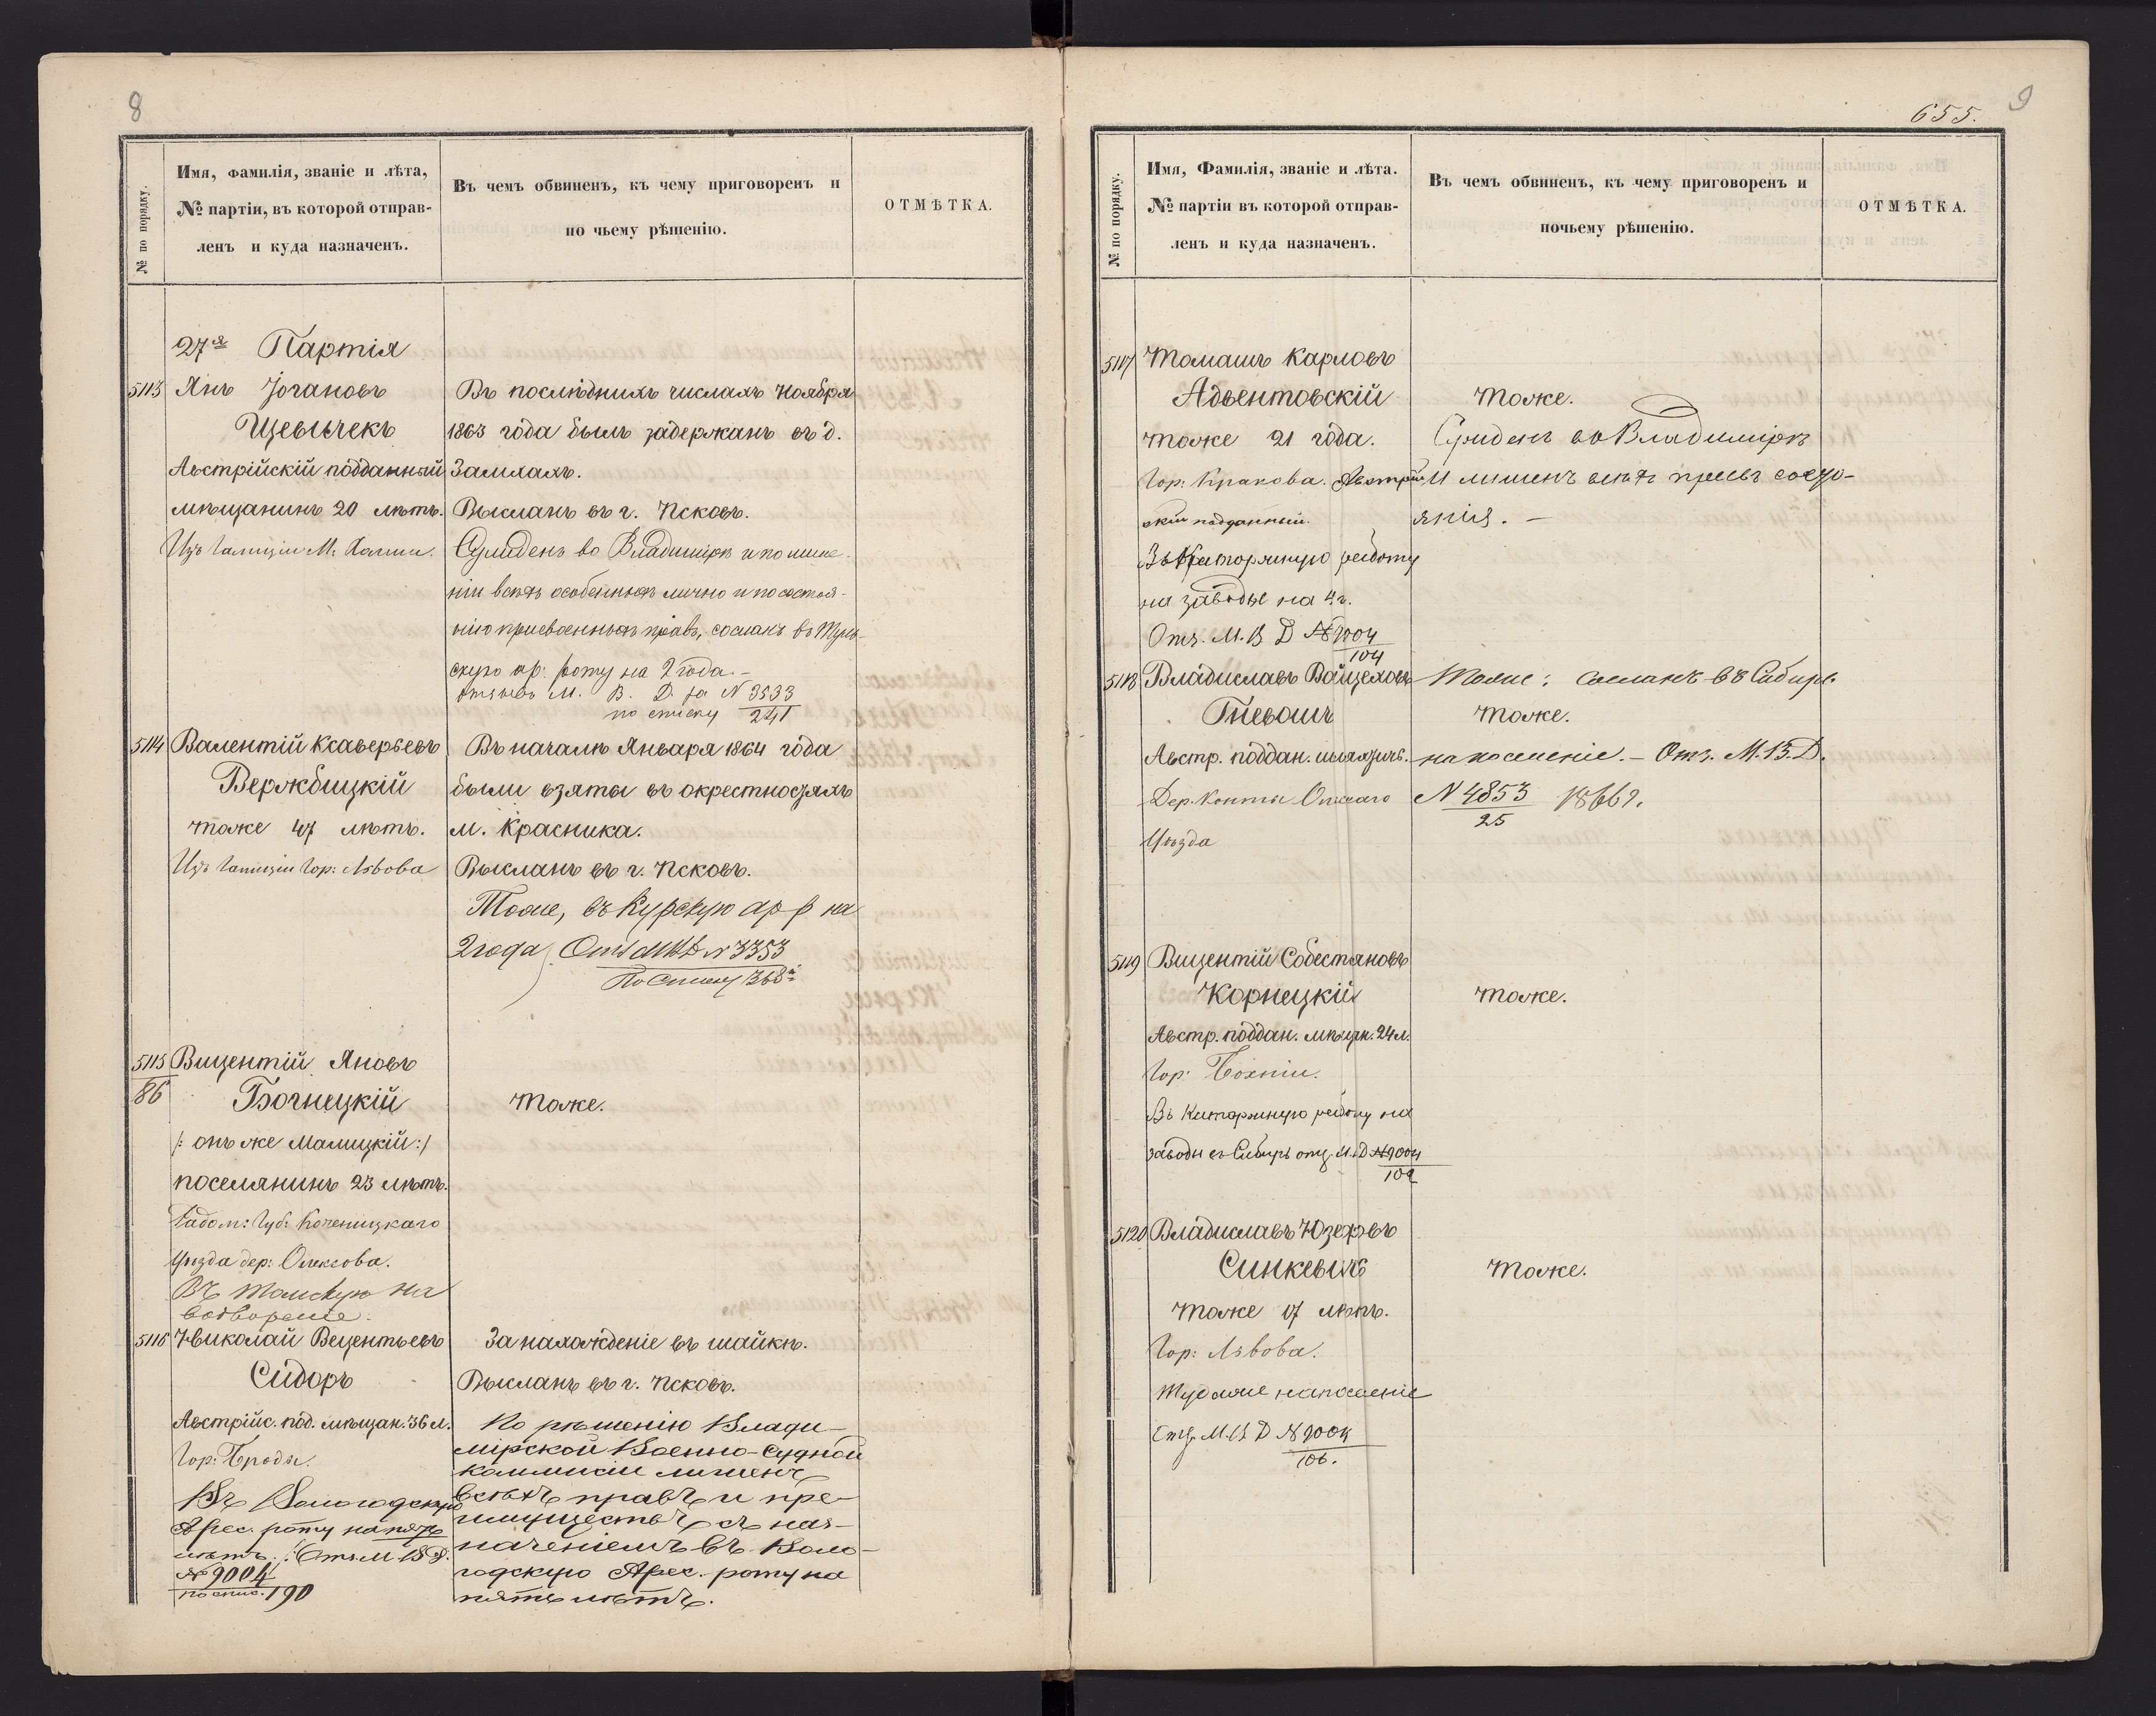 8
№ по порядку.
Имя, фамилія, званіе и лѣта,
№ партіи, въ которой отправ-
ленъ и куда назначенъ.
Въ чемъ обвиненъ, къ чему приговоренъ и
по чьему рѣшенію.
ОТМѢТКА.
27я Партія
5113 Янъ Іогановъ
Щевычекъ
Австрійскій подданный
мѣщанинъ 20 лѣтъ.
Изъ Галиціи М:
Въ послѣднихъ числахъ Ноября
1863 года былъ задержанъ въ д.
Замхахъ.
Высланъ въ г. Псковъ.
Сужденъ во Владимірѣ и по лише-
ніи всѣхъ особенныхъ лично и по состоя-
нію присвоенныхъ правъ, сосланъ въ
скую ар: роту на 2 года.-
отзывъ М. В. Д. за N 3533
по списку 241
5114 Валентій Ксаверьевъ
Вержбицкій
тоже 47 лѣтъ.
Изъ Галиціи Гор: Львова
Въ началѣ Января 1864 года
были взяты въ окрестностяхъ
м. Красника.
Высланъ въ г. Псковъ.
Тоже, въ Курскую ар р на
2 года. Отз МВД N 3353
По списку 368
5115
86
Вицентій Яновъ
Богнецкій
/: онъ же Малицкій:/
поселянинъ 23 лѣтъ.
Радом: Губ: Козеницкаго
Уѣзда дер: Олексова.
Въ Томскую на
водвореніе.
тоже.
5116 Николай Вецентьевъ
Сидоръ
Австрійс. под. мѣщан. 36 л.
Гор: Броды.
Въ Вологодскую
Арес. роту на пять
лѣтъ. /: Отз. М В Д.
№ 9004
по спис. 190
За нахожденіе въ шайкѣ.
Высланъ въ г. Псковъ.
По рѣшенію Влади-
мірской Военно-Судной
коммисіи лишенъ
всѣхъ правъ и пре-
имуществъ, съ наз-
наченіемъ въ Воло-
годскую Арес. роту на
пять лѣтъ.
655.
9
№ по порядку.
Имя, Фамилія, званіе и лѣта.
№ партіи въ которой отправ-
ленъ и куда назначенъ.
Въ чемъ обвиненъ, къ чему приговоренъ и
почьему рѣшенію.
ОТМѢТКА.
5117 Томашъ Карловъ
Адвентовскій
тоже 21 года.
Гор: Кракова. Австрій-
скій подданный.
Въ Каторжную работу
на заводы на 4 г.
Отз. М. В Д № 9004
104
тоже.
Сужденъ во Владимірѣ
и лишенъ всѣхъ правъ состо-
янія. -
5118 Владиславъ Войцеховъ
Гневошъ
Австр. поддан. шляхтич.
Дер. Конты
Уѣзда
Тоже: сосланъ въ Сибирь
тоже.
на поселеніе. - Отз. М. В. Д.
N 4853 1866 г.
25
5119 Вицентій Собестяновъ
Корнецкій
Австр. поддан. мѣщан. 24 л.
Гор: Бохніи.
Въ Каторжную работу на
заводы въ Сибирь отз. М.В.Д № 9004
102
тоже.
5120 Владиславъ Юзефовъ
Синкевичъ
тоже 17 лѣтъ.
Гор: Львова.
Туда же на поселеніе
Отз. М. В Д № 9004
106.
тоже.